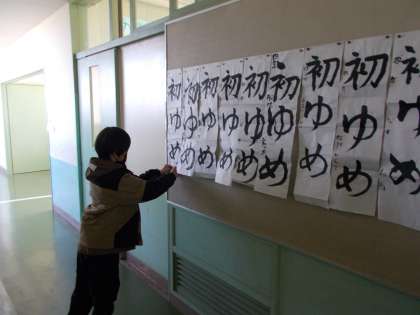 初ゆめ
初ゆめ
初ゆめ
初ゆめ
初ゆめ
初ゆめ
初ゆめ
初ゆめ
初ゆめ